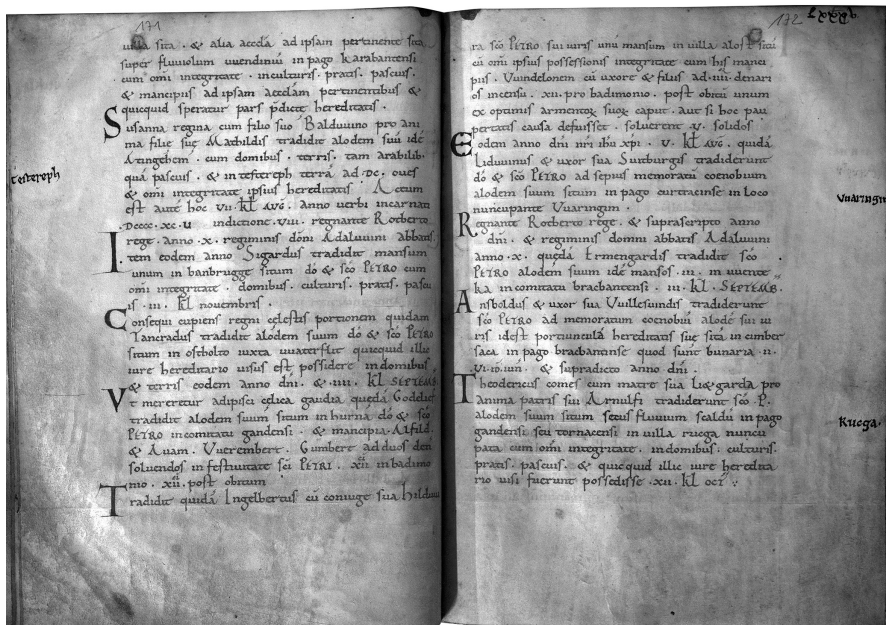 171
uilla sita . & alia accola ad ipsam pertinente sita
super fluuiolum uuendiniū in pago karabantensi
cum omi integritate . in culturis . pratis . pascuis .
& mancipiis ad ipsam accolam pertinentibus &
quicquid speratur pars p̄dictę hereditatis .
Susanna regina cum filio suo Balduuino pro ani
ma filię suę Mathildis tradidit alodem suū idē
Atingehem . cum domibus . terris . tam arabilib.
quā pascuis . & in testereph terrā ad .DC. oues
& omi integritate ipsius hereditatis . Actum
est autē hoc .VII. kl AVG . anno uerbi incarnati
.DCCCC.XC.U indictione .VIII. regnante Rotberto
rege . anno .X. regiminis dōni Adaluuini abbatis .
Item eodem anno Sigardus tradidit mansum
unum in banbrugge situm dō & scō PETRO cum
omi integritate . domibus . culturis . pratis . pascu
is . III . kl nouembris .
Consequi cupiens regni cęlestis portionem quidam
Tancradus tradidit alodem suum dō & scō PETRO
situm in ostholto iuxta uuaterflit quicquid illic
iure hereditario uisus est possidere in domibus
& terris eodem anno dn̄i . & .IIII. kl SEPTEMB.
Vt mereretur adipisci cęlica gaudia quędā Goddele
tradidit alodem suum situm in hurnā dō & scō
PETRO in comitatu gandensi . & mancipia . Alfild .
& Auam . Vuerembert . Gumbert ad duos den
soluendos in festiuitate sc̄i PETRI . XII in badimo
nio . XII . post obitum
Tradidit quidā Ingelbertus cū coniuge sua hilduua
Testereph
172
ra scō PETRO sui iuris unū mansum in uilla alost sitū
cū omi ipsius possessionis integritate cum his manci
piis . Vuindelonem cū uxore & filiis ad .IIII. denari
os in censu . XII. pro badimonio . post obitū unum
ex optimis armentoꝝ suoꝝ caput . aut si hoc pau
pertatis causa defuisset . soluerent .V. solidos
Eodem anno dn̄i nr̄i ihu xp̄i . V . kl AVG . quidā
Liduuinus & uxor sua Suitburgis tradiderunt
dō & scō PETRO ad sepius memoratū coenobium
alodem suum situm in pago curtracinse in loco
nuncupante Vuaringim .
Regnante Rotberto rege . & suprascripto anno
dn̄i . & regiminis domni abbatis Adaluuini
anno .X. quędā Ermengardis tradidit scō
PETRO alodem suum idē mansos .III. in uuente
ka in comitatu bracbantensi . III . kl . SEPTEMB .
Ansboldus & uxor sua Vuillesuindis tradiderunt
scō PETRO ad memoratum coenobiū alodē sui iu
ris idest portiunculā hereditatis suę sitā in cimber
saca in pago bracbantense quod sunt bunaria .II.
& supradicto anno dn̄i .
Theodericus comes cum matre sua liegarda pro
anima patris sui Arnulfi tradiderunt scō .P.
alodem suum situm secus fluuium scaldū in pago
gandensi seu tornacensi in uilla ruega nuncu
pata cum omi integritate . in domibus . culturis .
pratis . pascuis . & quicquid illic iure heredita
rio uisi fuerunt possedisse . XII . kl OCT
Vuaringim
Ruega .